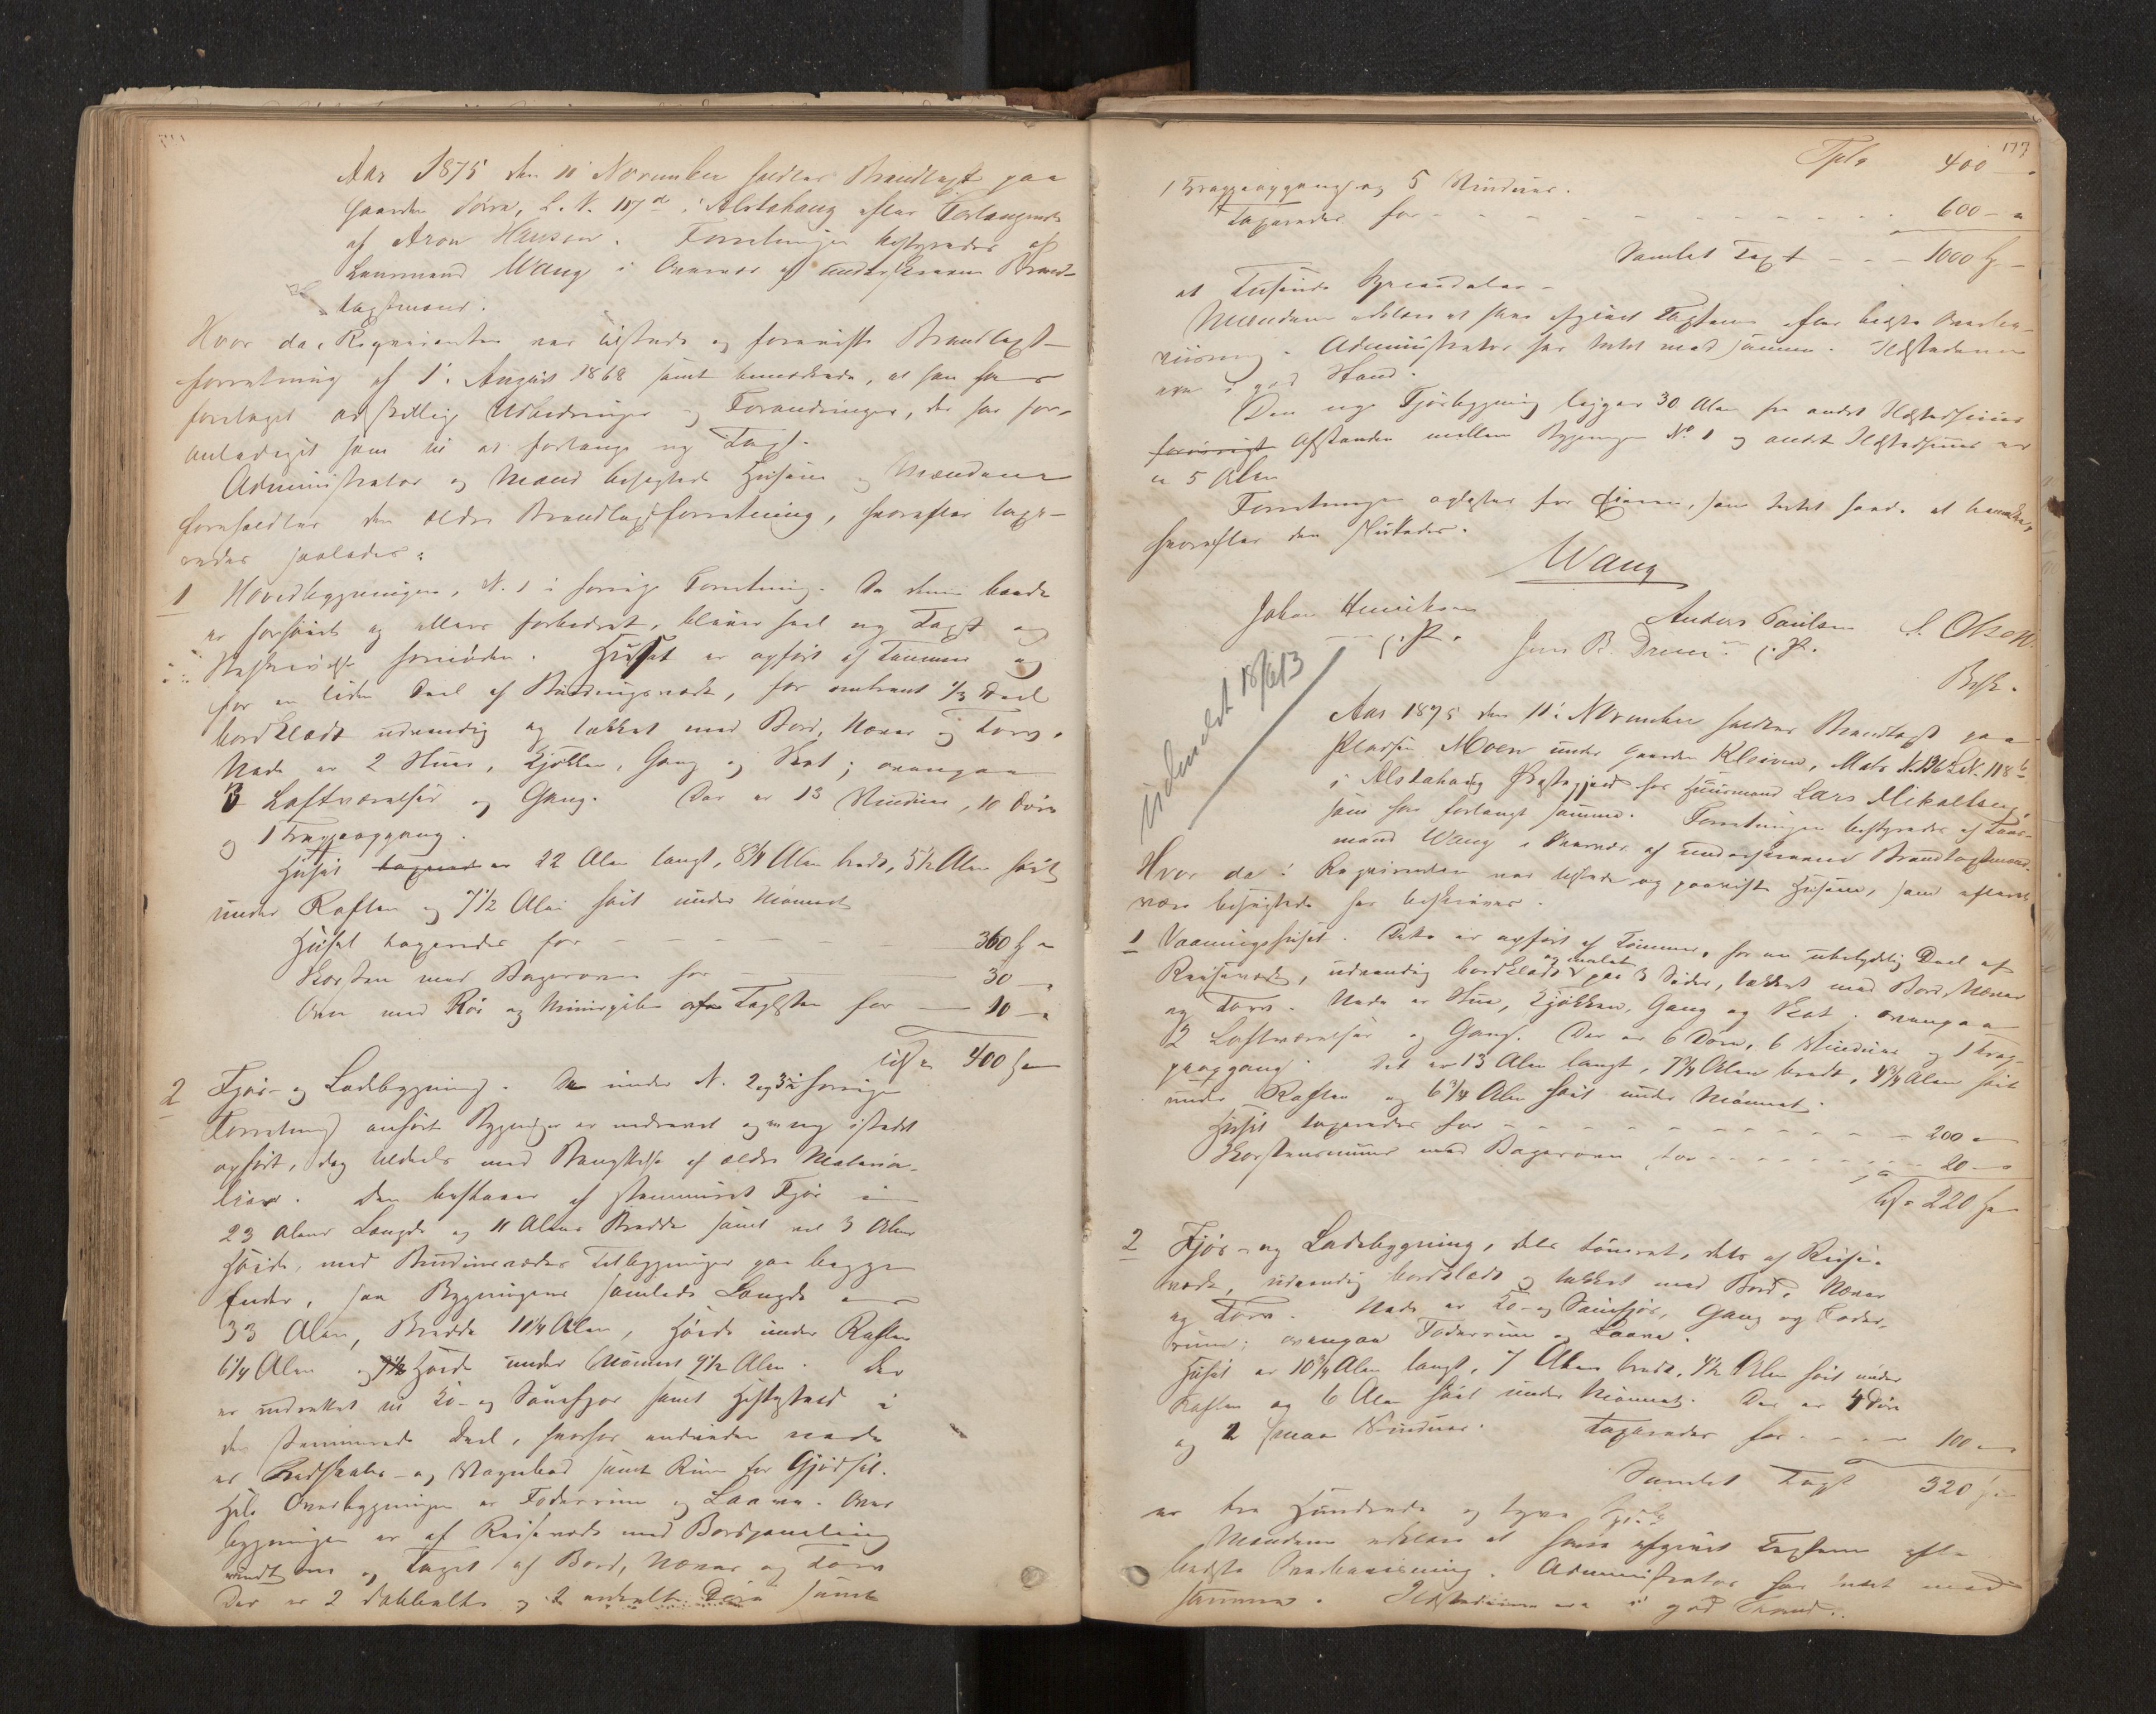 Aar 1875 den 11' November holdtes Brandtaxt paa
Gaarden L. N. 117a i Alstahaug efter Forlangende
af Aron Hansen. Forretningen bestyredes af
Lensmand Wang i Overvær af undertegnede Brand-
taxtmænd.
Hvor da: Reqvirenten var tilstede og foreviste Brandtaxt-
forretning af 1' August 1868 samt bemærkede, at han har
foretaget adskillige Udbedringer og Forandringer, der har for-
anlediget ham til at forlange ny Taxt.
Administrator og Mænd besigtede Husene og Mændene
foreholdtes den ældre Brandtaxtforretning, hvorefter taxe-
redes saaledes:
1 Hovedbygningen, N. 1 i forrige Forretning. Da denne baade
er forhøiet og ellers forbedret, bliver heel ny Taxt og
Beskrivelse fornøden. Huset er opført af Tømmer og
for en liden Deel af Bindingsværk, for omtrent 1/3 Deel
bordklædt udvendig og tækket med Bord, Næver og Torv.
Nede er 2 Stuer, Kjøkken, Gang og Skot; ovenpaa
3 Loftværelser og Gang. Der er 13 Vinduer, 10 Døre
og 1 Trappeopgang.
Huset er 22 Alen langt, 8 3/4 Alen bredt, 5 1/2 Alen høit
under Raften og 7 1/2 Alen høit under Mønnet
Huset taxeredes for - - - 360
Skorsten med Bagerovn for - 30
Ovn med Rør og af Taglsten for - 10
400
2 Fjøs- og Ladebygning. De under N. 2 og 3 i forrige
Forretning anførte Bygninger er nedrevet og en ny istedet
opført, dog tildeels med Benyttelse af ældre Materia-
lier. Den bestaaer af steenmuret Fjøs i
23 Alens Længde og 11 Alens Bredde samt 3 Alens
Høide, med Tilbygninger paa begge
Ender, saa Bygningens samlede Længde er
33 Alen, Bredde 10 1/4 Alen, Høide under Raften
6 1/4 Alen og Høide under Mønnet 9 1/2 Alen. Der
er indrettet til Ko- og Sauefjøs samt Hestestald i
den stenmurede Deel, hvorhos nede
er Redskabs- og Vognbod samt Rum for Gjødsel.
Hele Overbygningen er Foderrum og Laave. Over-
bygningen er af Reisværk med Bordpaneling
rundt om og Taget af Bord, Næver og Torv
Der er 2 dobbelte og 2 enkelte Døre samt
177
Tplr 400
1 Trappeopgang og 5 Vinduer.
Taxeredes for - - - 600 -
Samlet Taxt - - - 1000
et Tusinde Speciedaler -
Mændene erklærer at have afgivet Taxten efter bedste Overbe-
viisning. Administrator har Intet mod samme. Ildstederne
ere i god Stand.
Den nye Fjøsbygning ligger 30 Alen fra andet Ildstedshuus
Afstanden mellem Bygningen No 1 og andet Ildstedshuus er
5 Alen
Forretningen oplæstes for Eieren, som Intet havde at bemærke,
hvorefter den sluttedes.
Wang
Johan Henriksen
Anders Paulsen
S. Olsen
Jens B.
m. f. P.
m. f. P.
Besk.
Udmeldt 18/6/13
Aar 1875 den 11' November holdtes Brandtaxt paa
Pladsen Moen under Gaarden Kleiven, Matr N. 136 L. N. 118b
i Alstahaug Præstegjeld for Huusmand Lars Mikalsen,
som har forlangt samme. Forretningen bestyredes af Lens-
mand Wang i Overvær af undertegnede Brandtaxtmænd.
Hvor da: Reqvirenten var tilstede og paaviste Husene, som efter at
være besigtede her beskrives.
1 Vaaningshuset. Dette er opført af Tømmer, for en ubetydelig Deel af
Reisværk, udvendig bordklædt og malet paa 3 Sider, tækket med Bord, Næver
og Torv. Nede er Stue, Kjøkken, Gang og Skot; ovenpaa
2 Loftværelser og Gang. Der er 6 Døre, 6 Vinduer og 1 Trap-
peopgang. Det er 13 Alen langt, 7 3/4 Alen bredt, 4 3/4 Alen høit
under Raften og 6 3/4 Alen høit under Mønnet.
Huset taxeredes for - - - 200
Skorstensmuur med Bagerovn for - - - 20
220
2 Fjøs- og Ladebygning, dels tømret, dels af Reis-
værk, udvendig bordklædt og tækket med Bord, Næver
og Torv. Nede er Ko- og Sauefjøs, Gang og Foder-
rum; ovenpaa Foderrum og Laave.
Huset er 10 3/4 Alen langt, 7 Alen bredt, 4 1/2 Alen høit under
Raften og 6 Alen høit under Mønnet. Der er 4 Døre
og 2 smaa Vinduer. Taxeredes for - - - 100
Samlet Taxt 320
er tre Hundrede og tyve
Mændene erklære at have afgivet Taxten efter
bedste Overbeviisning. Administrator har intet mod
samme. Ildstederne ere i god Stand.